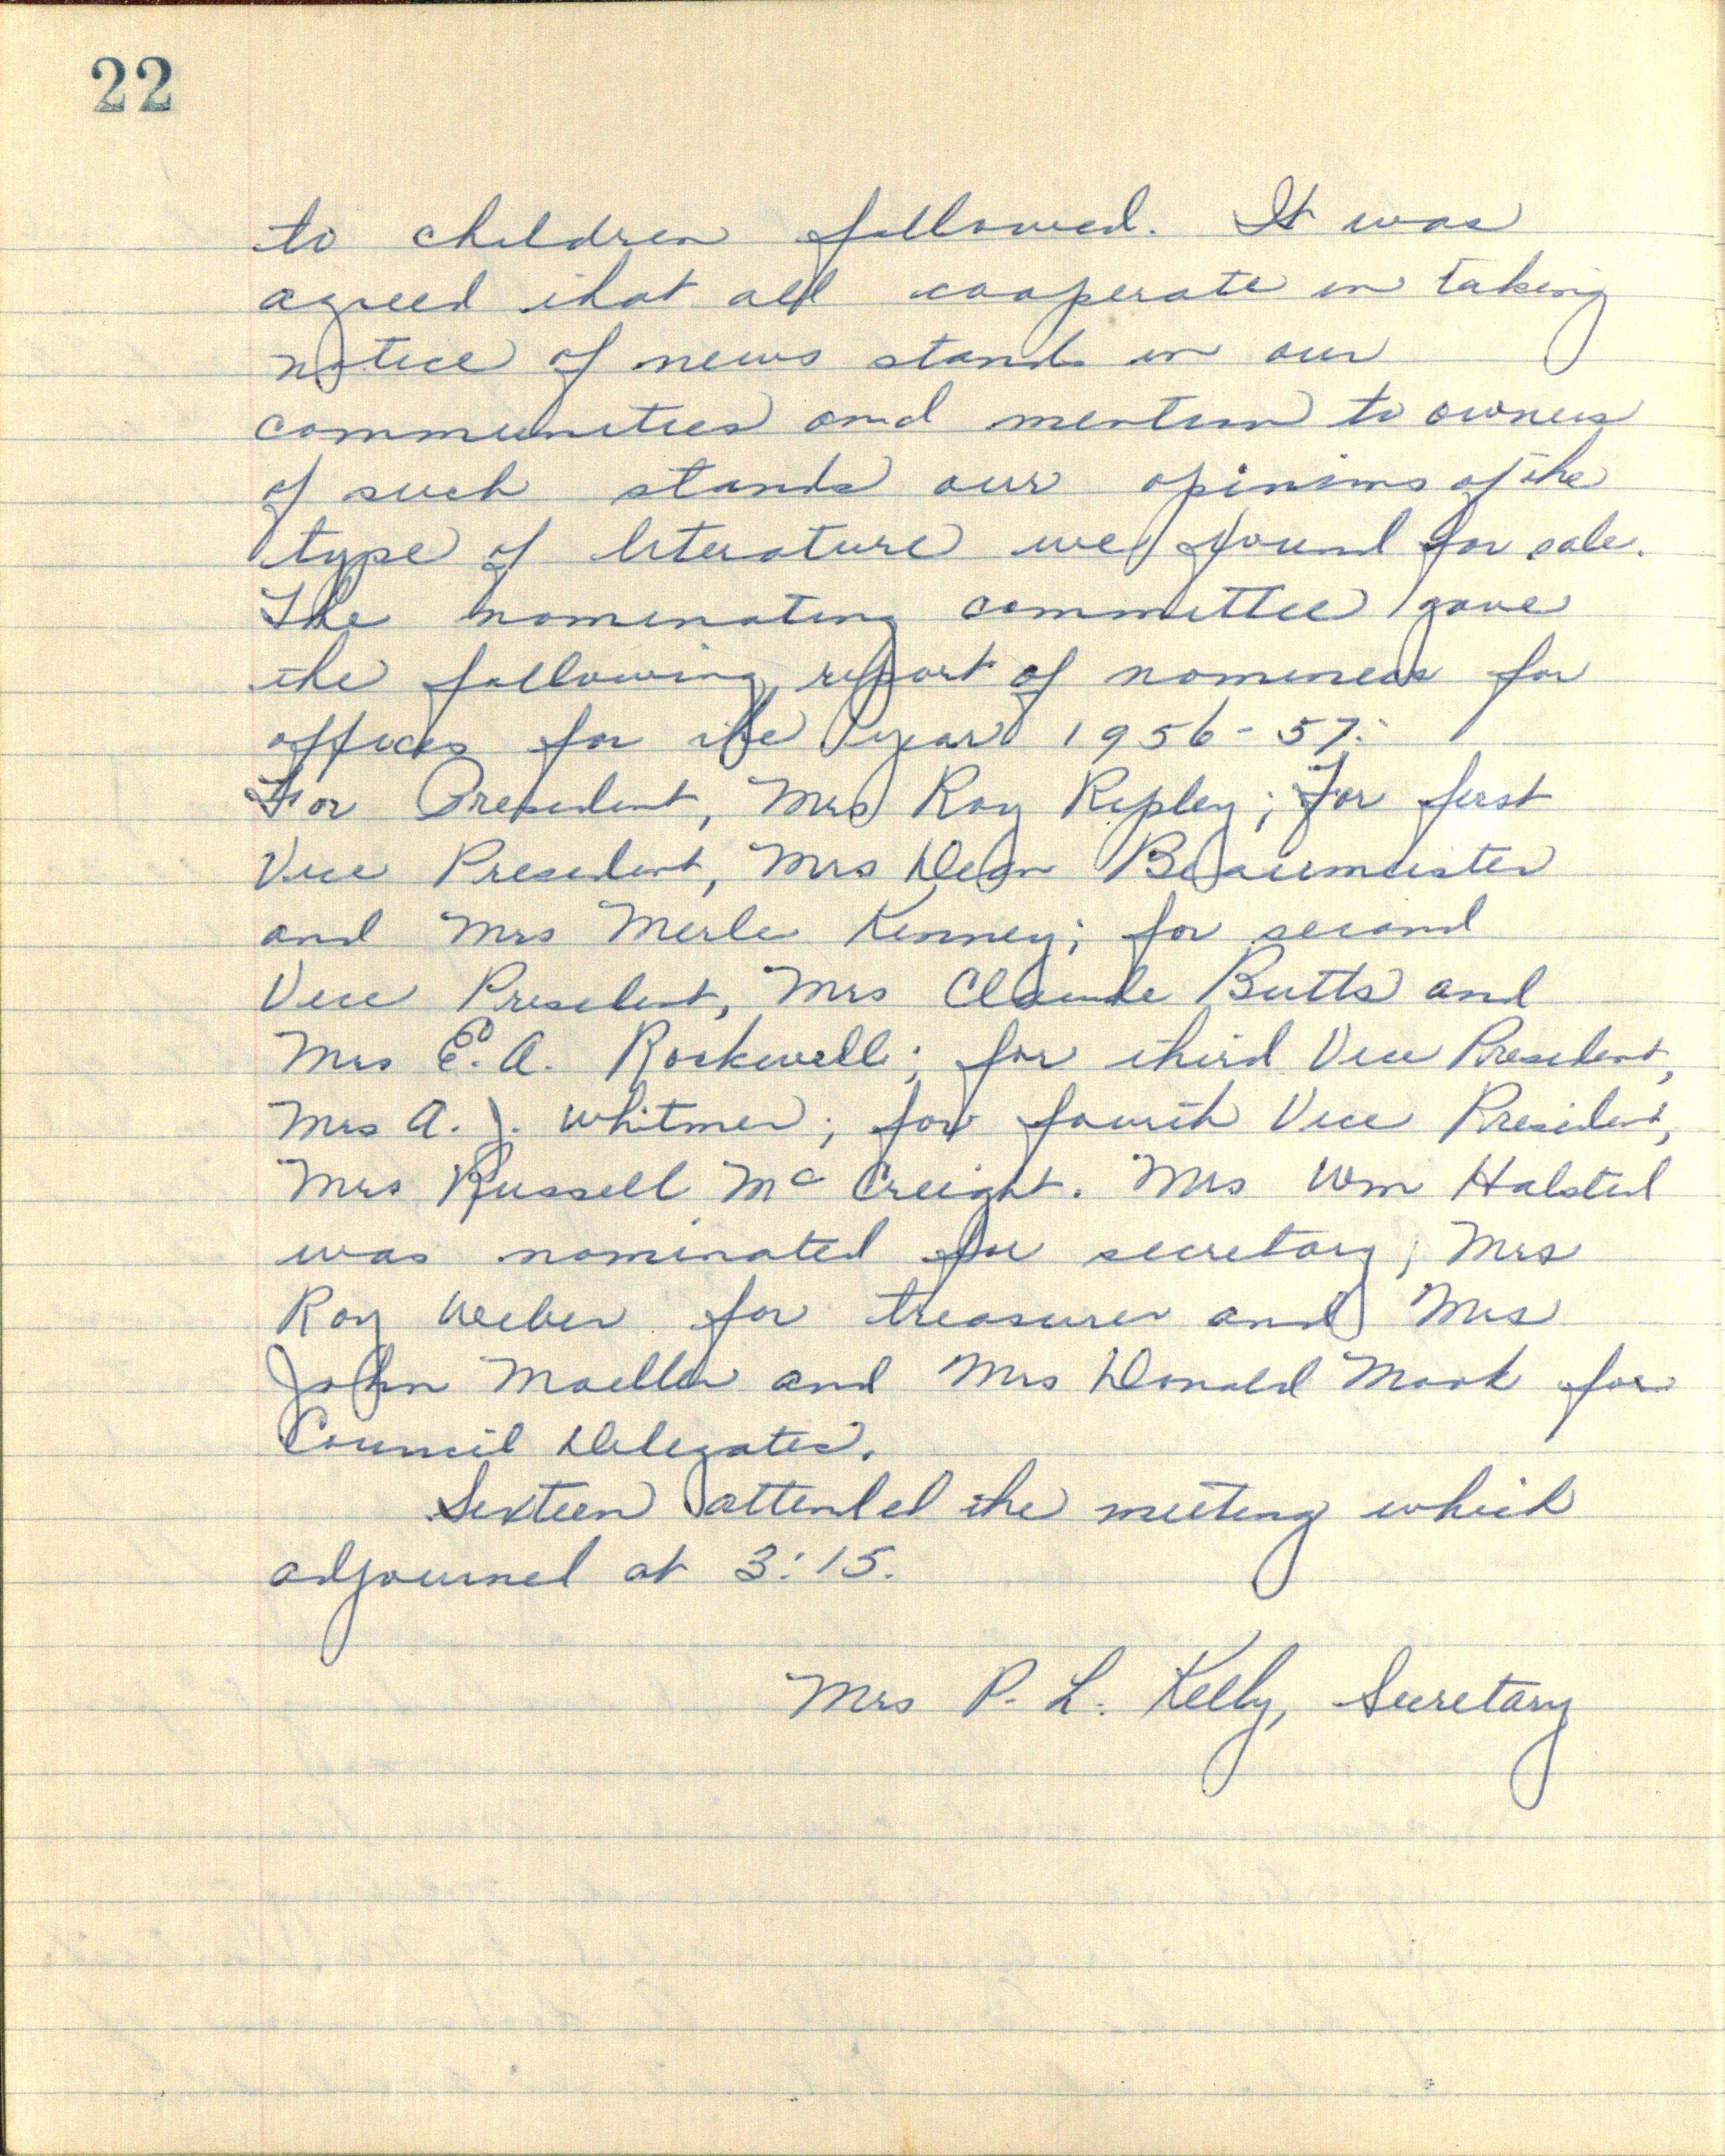 22
to children followed. It was
agreed that all cooperate in taking
notice of news stands in our
communities and mention to owners
of such stands our opinions of the
type of literature we found for sale.
The nominating committee gave
the following report of nominees for
offices for the year 1956-57:
For President, Mrs Roy Ripley; For first
Vice President, Mrs Dean Beauermeister
and Mrs Merle Kenney; for second
Vice President, Mrs Claude Butts and
Mrs E. A. Rockwell; for third Vice President,
Mrs A. J. Whitmer; for fourth Vice President,
Mrs Russell Mc Creight. Mrs Wm Halsted
was nominated for secretary; Mrs
Roy Weber for treasurer and Mrs
John Moeller and Mrs Donald Mook for
Council Delegates.
Sixteen attended the meeting which
adjourned at 3:15.
Mrs P. L. Kelly, Secretary